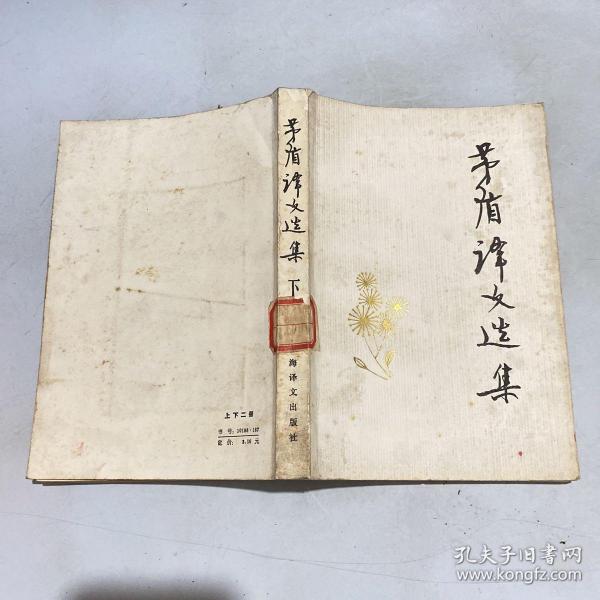 茅盾译文选集
茅盾译文选集 下
海译文出版社
上下二册
书号：10188·187
定价：3.10元
孔夫子旧书网
www.kongfz.com